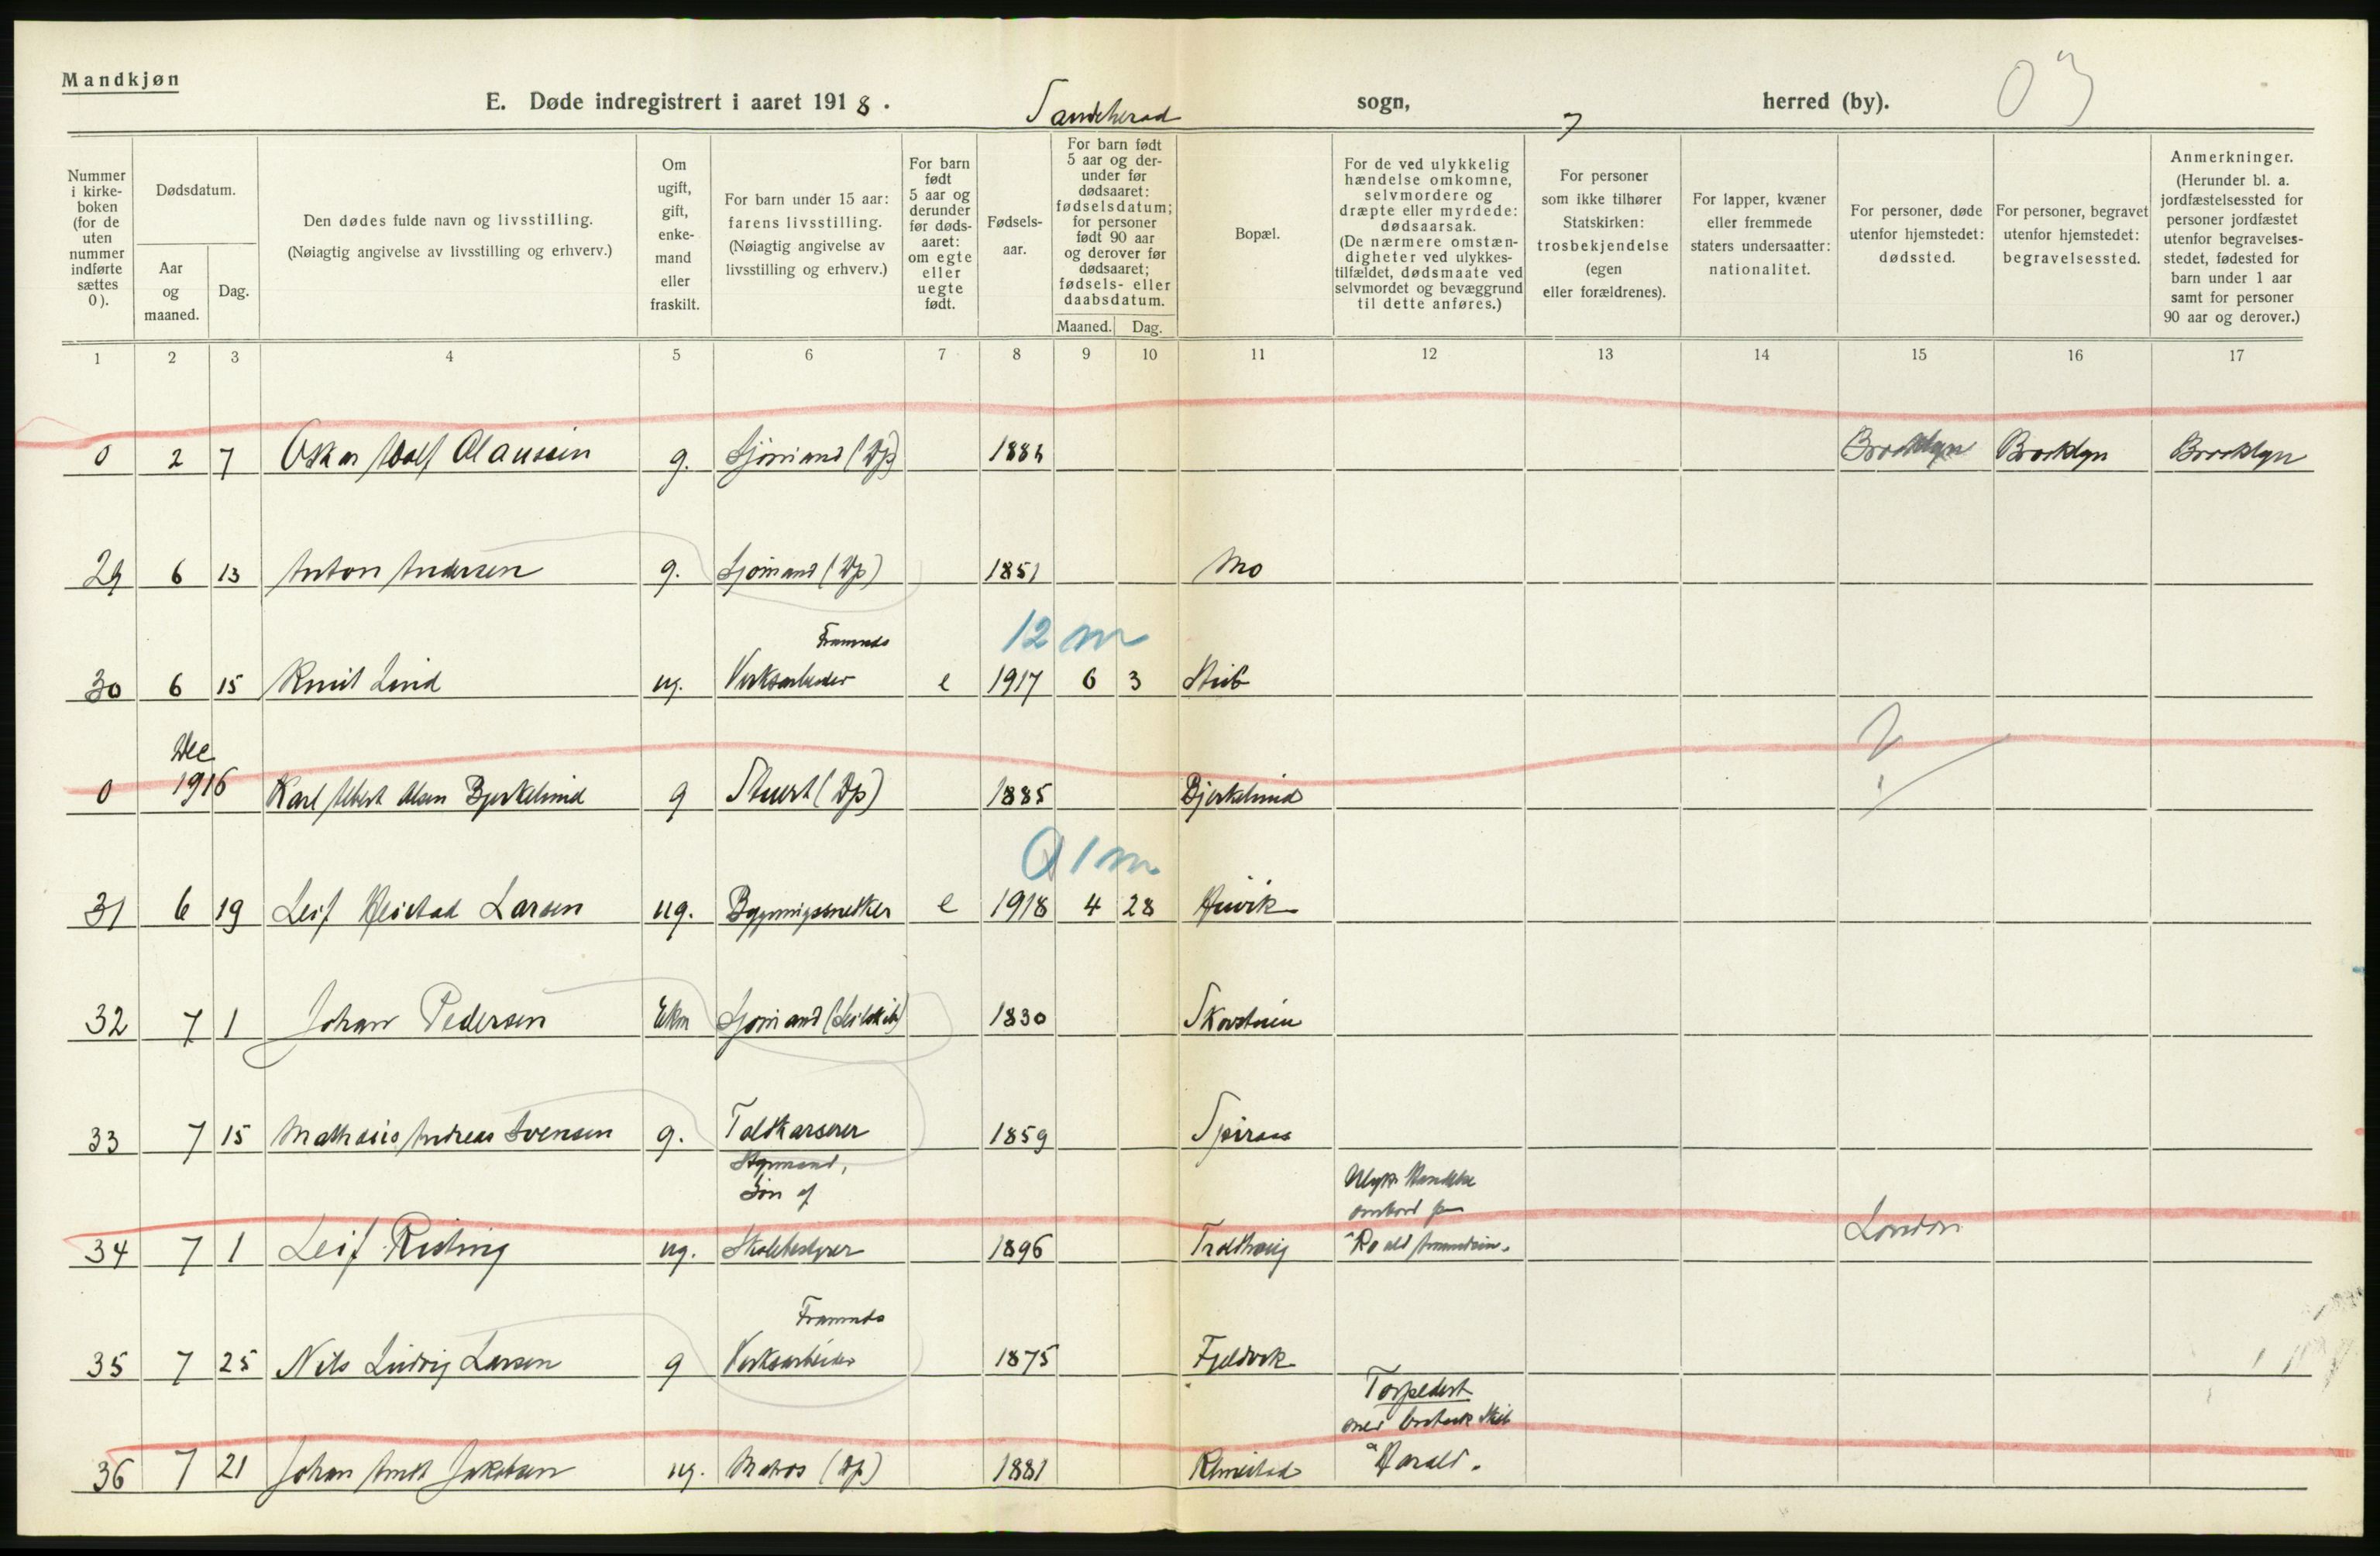 Mandkjøn
E. Døde indregistrert i aaret 1918. Sandeherad sogn, herred (by).
03
Nummer i kirke-boken (for de uten nummer indførte sættes 0).
Dødsdatum.
Aar og maaned.
Dag.
Den dødes fulde navn og livsstilling.
(Nøiagtig angivelse av livsstilling og erhverv.)
Om ugift, gift, enke-mand eller fraskilt.
For barn under 15 aar: farens livsstilling. (Nøiagtig angivelse av livsstilling og erhverv.)
For barn født 5 aar og derunder før døds-aaret: om egte eller uegte født.
Fødsels-aar.
For barn født 5 aar og der-under før dødsaaret: fødselsdatum; for personer født 90 aar og derover før dødsaaret; fødsels- eller daabsdatum.
Maaned. Dag.
Bopæl.
For de ved ulykkelig hændelse omkomne, selvmordere og dræpte eller myrdede: dødsaarsak. (De nærmere omstæn-digheter ved ulykkes-tilfældet, dødsmaate ved selvmordet og bevæggrund til dette anføres.)
For personer som ikke tilhører Statskirken: trosbekjendelse (egen eller forældrenes).
For lapper, kvæner eller fremmede staters undersaatter: nationalitet.
For personer, døde utenfor hjemstedet: dødssted.
For personer, begravet utenfor hjemstedet: begravelsessted.
Anmerkninger. (Herunder bl. a. jordfæstelsessted for personer jordfæstet utenfor begravelses-stedet, fødested for barn under 1 aar samt for personer 90 aar og derover.)
1 2 3 4 5 6 7 8 9 10 11 12 13 14 15 16 17
0 2 7 Oskar Adolf Olaussen g. Sjømand (Dp) Brooklyn Brooklyn Brooklyn
29 6 13 Anton Andersen g. Sjømand (Dp) 1851 Mo
Framnæs 12 m
30 6 15 Knut Lind ug. Verksarbeider e 1917 6 3 Stub
Dec
0 1916 Karl Albert Olsen Bjerkelund g Stuert (Dp) 1885 Bjerkelund
0 1 m
31 6 19 Leif Heistad Larsen ug. Bygningssnekker e 1918 4 28 Huvik
32 7 1 Johan Pedersen Ekm Sjømand (Seilskib) 1830
33 7 15 Mathæus Andreas Svensen g. Toldkasserer 1859
Styrmand, Ulyk. Hændelse
Søn af ombord paa
34 7 1 Leif Risting ug. Skolebestyrer 1896 "Roald Amundsen". London
Framnæs
35 7 25 Nils Ludvig Larsen g Verksarbeider 1875 Fjeldvik
Torpedert
med
36 7 21 Johan Arndt Jakobsen ug. Matros (Dp) 1881 Klinestad "Harald".